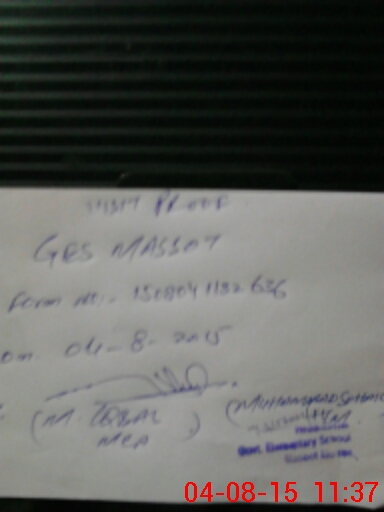 VISIT PROOF
GES MASSOT
Form No:- 1508041132636
on. 04-8-2015
(M. IQBAL)
MEA
(MUHAMMAD
Govt. Elementary School
04-08-15 11:37